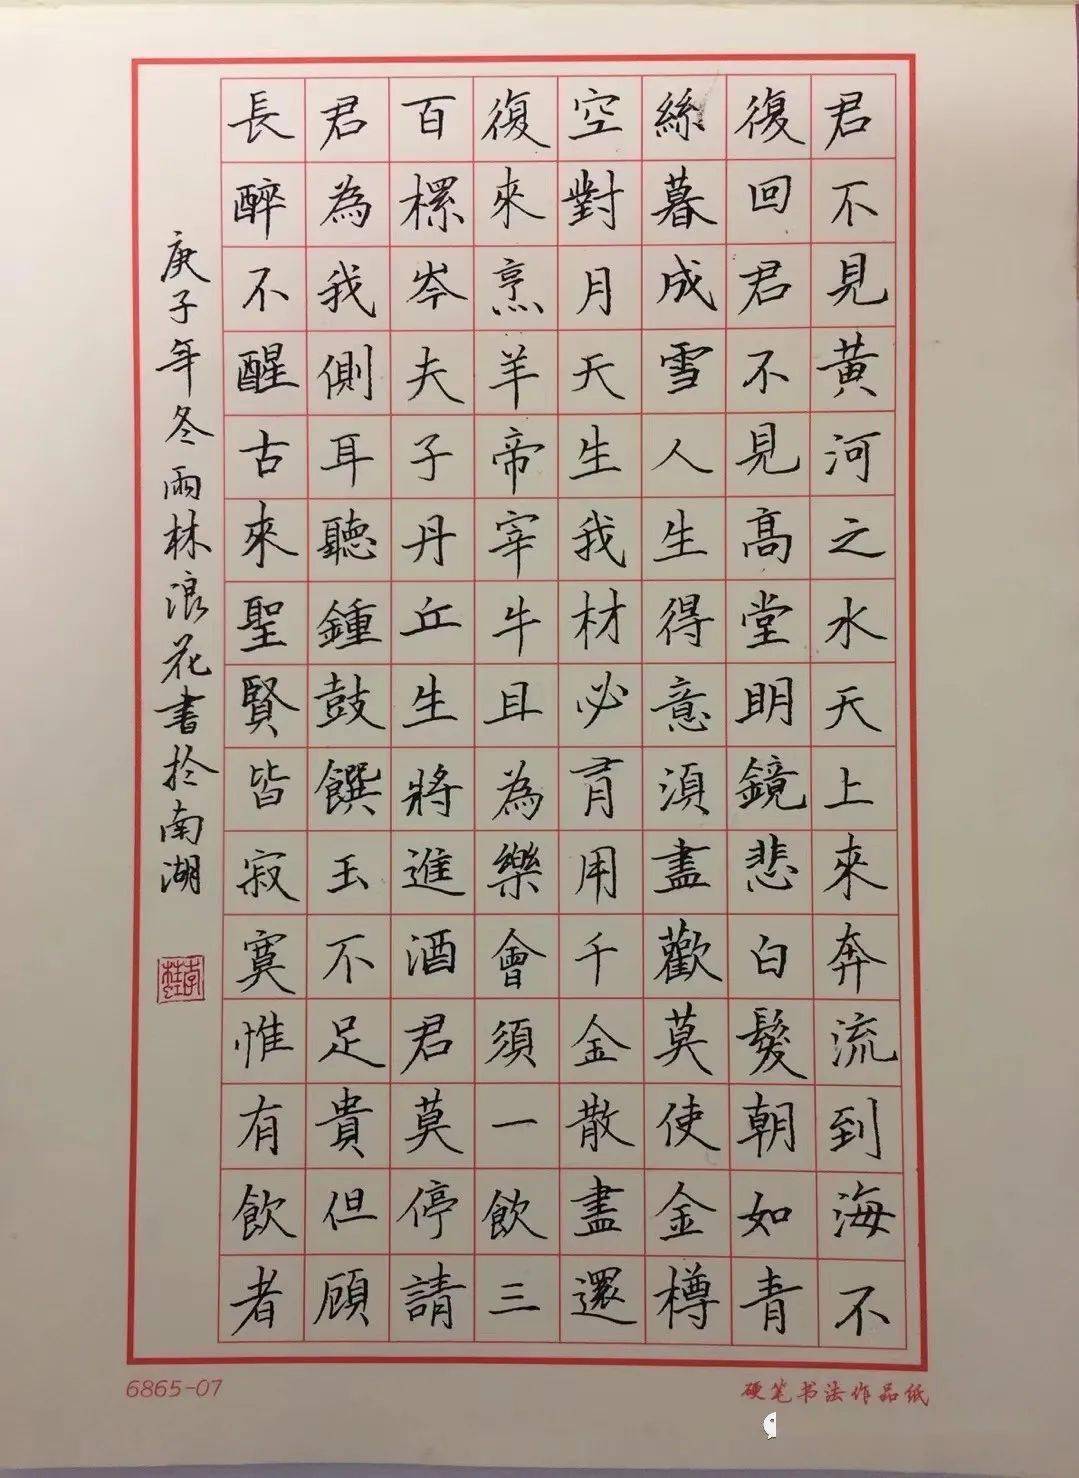 君不見黃河之水天上來奔流到海不
復回君不見高堂明鏡悲白髮朝如青
絲暮成雪人生得意須盡歡莫使金樽
空對月天生我材必有用千金散盡還
復來烹羊帝宰牛且為樂會須一飲三
百樏岑夫子丹丘生將進酒君莫停請
君為我側耳聽鍾鼓饌玉不足貴但顾
長醉不醒古來聖賢皆寂寞惟有飲者
庚子年冬雨林浪花書於南湖
6865-07
硬笔书法作品纸